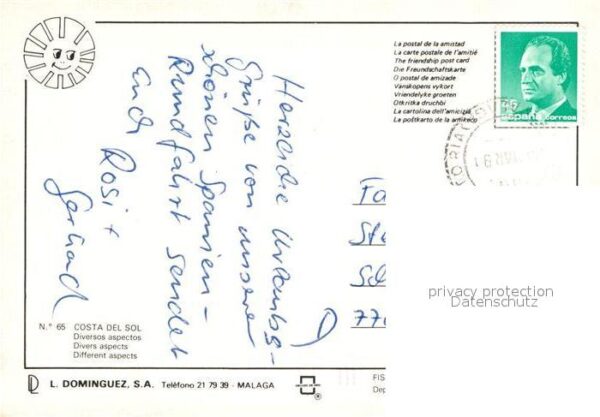 La postal de la amistad
La carte postale de l'amitié
The friendship post card
Die Freundschaftskarte
O postal de amizade
Vanskopens vykort
Vriendelyke groeten
Otkritka druchbi
La cartolina dell'amicizia
La poštkarto de la amikeco
45
españa correos
Herzliche Urlaubs-
grüße von unserer
schönen Spanien-
Rundfahrt sendet
Euch
Rosi +
Gerhard
Fa
St
Sc
77
privacy protection
Datenschutz
N.º 65 COSTA DEL SOL
Diversos aspectos
Divers aspects
Different aspects
L. DOMINGUEZ, S.A. Teléfono 21 79 39 - MALAGA
FIS
Dep